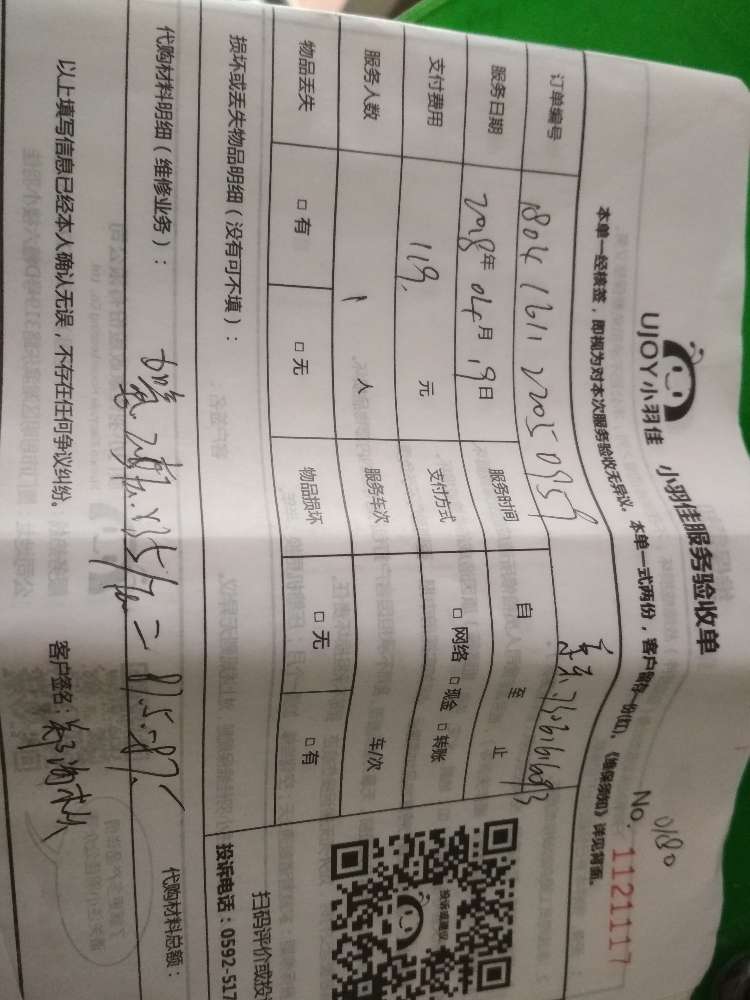 UJOY小羽佳 小羽佳服务验收单
No. 1121117
0180
本单一经核签，即视为对本次服务验收无异议。本单一式两份，客户留存一份(红)，《维保须知》详见背面。
订单编号 1804 1611 2205 0959
服务日期 2018年 04月 19日 服务时间 自 至 止
支付费用 119. 元 支付方式 □ 网络 □ 现金 □ 转账
服务人数 1 人 服务车次 车/次
物品丢失 □ 有 □ 无 物品损坏 □ 无 □ 有
损坏或丢失物品明细（没有可不填）：
扫码评价或投
投诉电话：0592-517
代购材料明细（维修业务）：
代购材料总额：
以上填写信息已经本人确认无误，不存在任何争议纠纷。
客户签名：